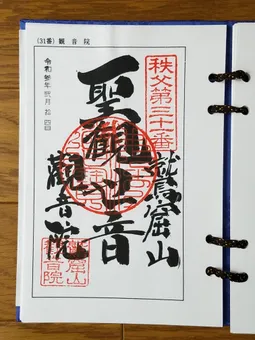 (31番) 観音院
秩父第三十一番
鷲窟山
聖観世音
觀音院
令和
年
月
日
鷲窟山
観音院